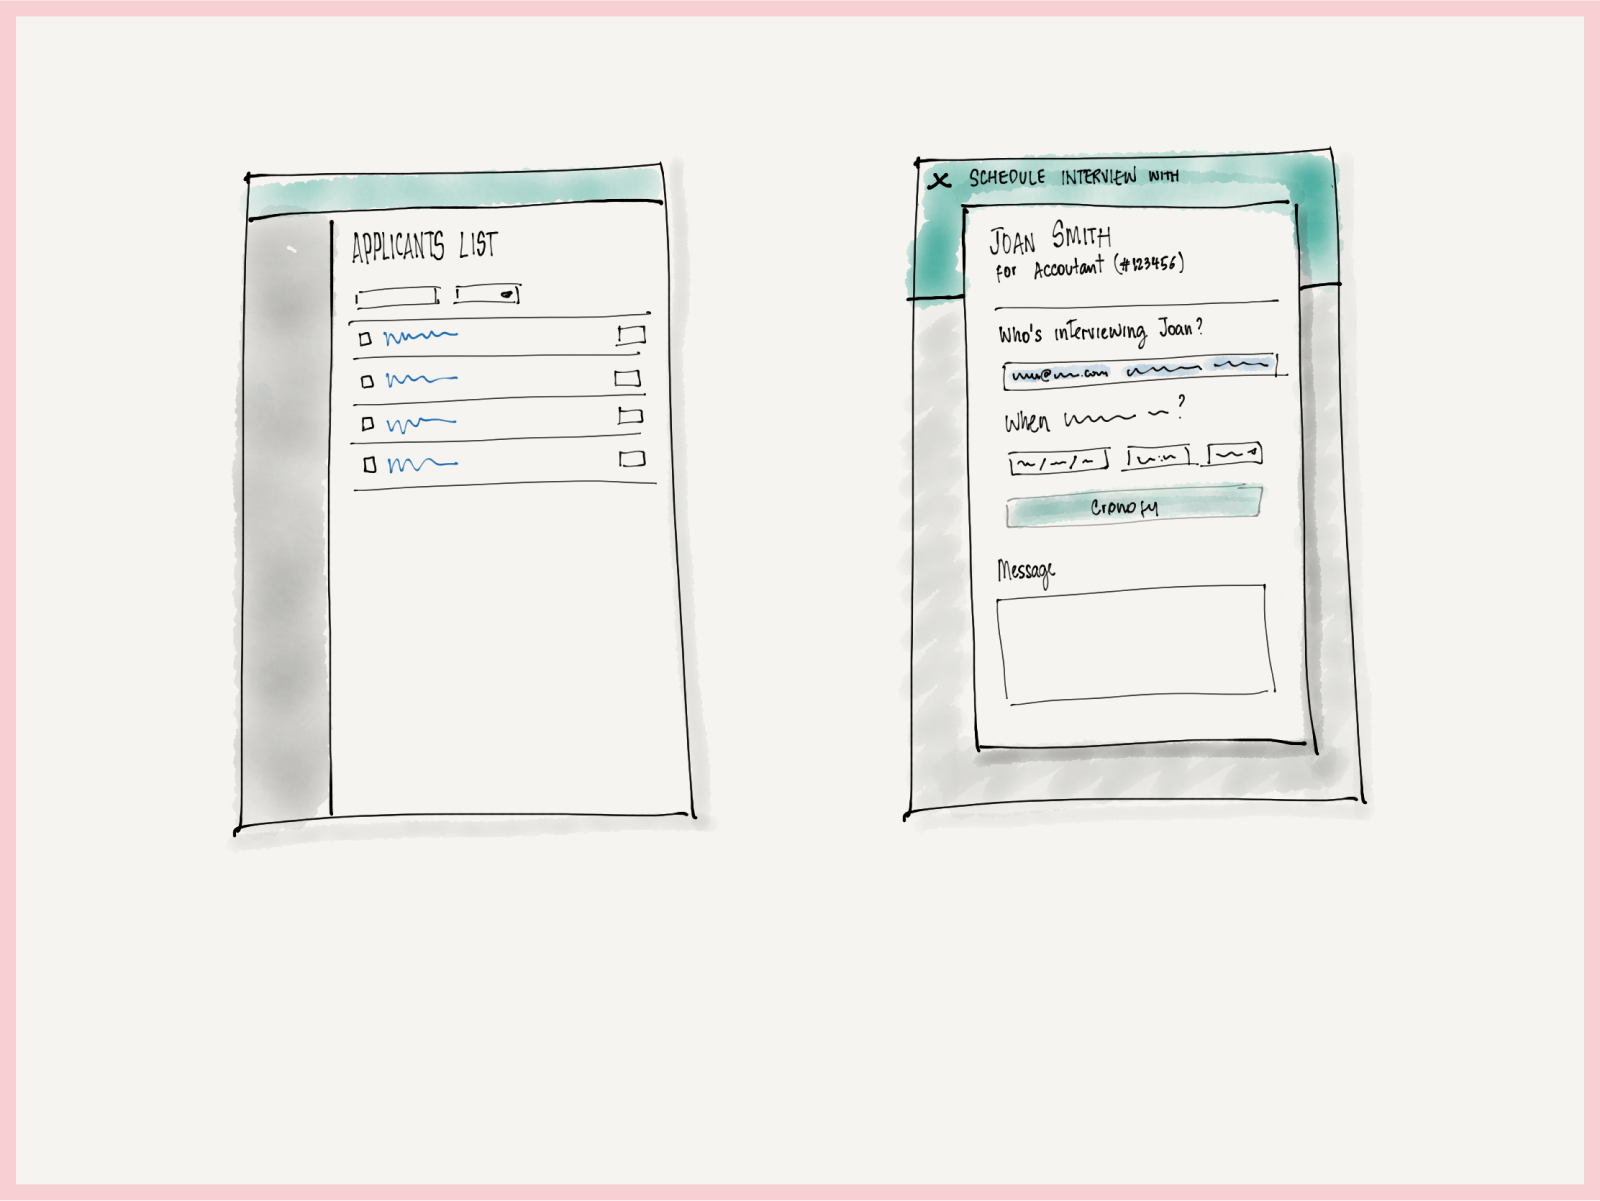 APPLICANTS LIST
X SCHEDULE INTERVIEW WITH
JOAN SMITH
for Accoutant (#123456)
Who's interviewing Joan?
When ?
Cronofy
Message